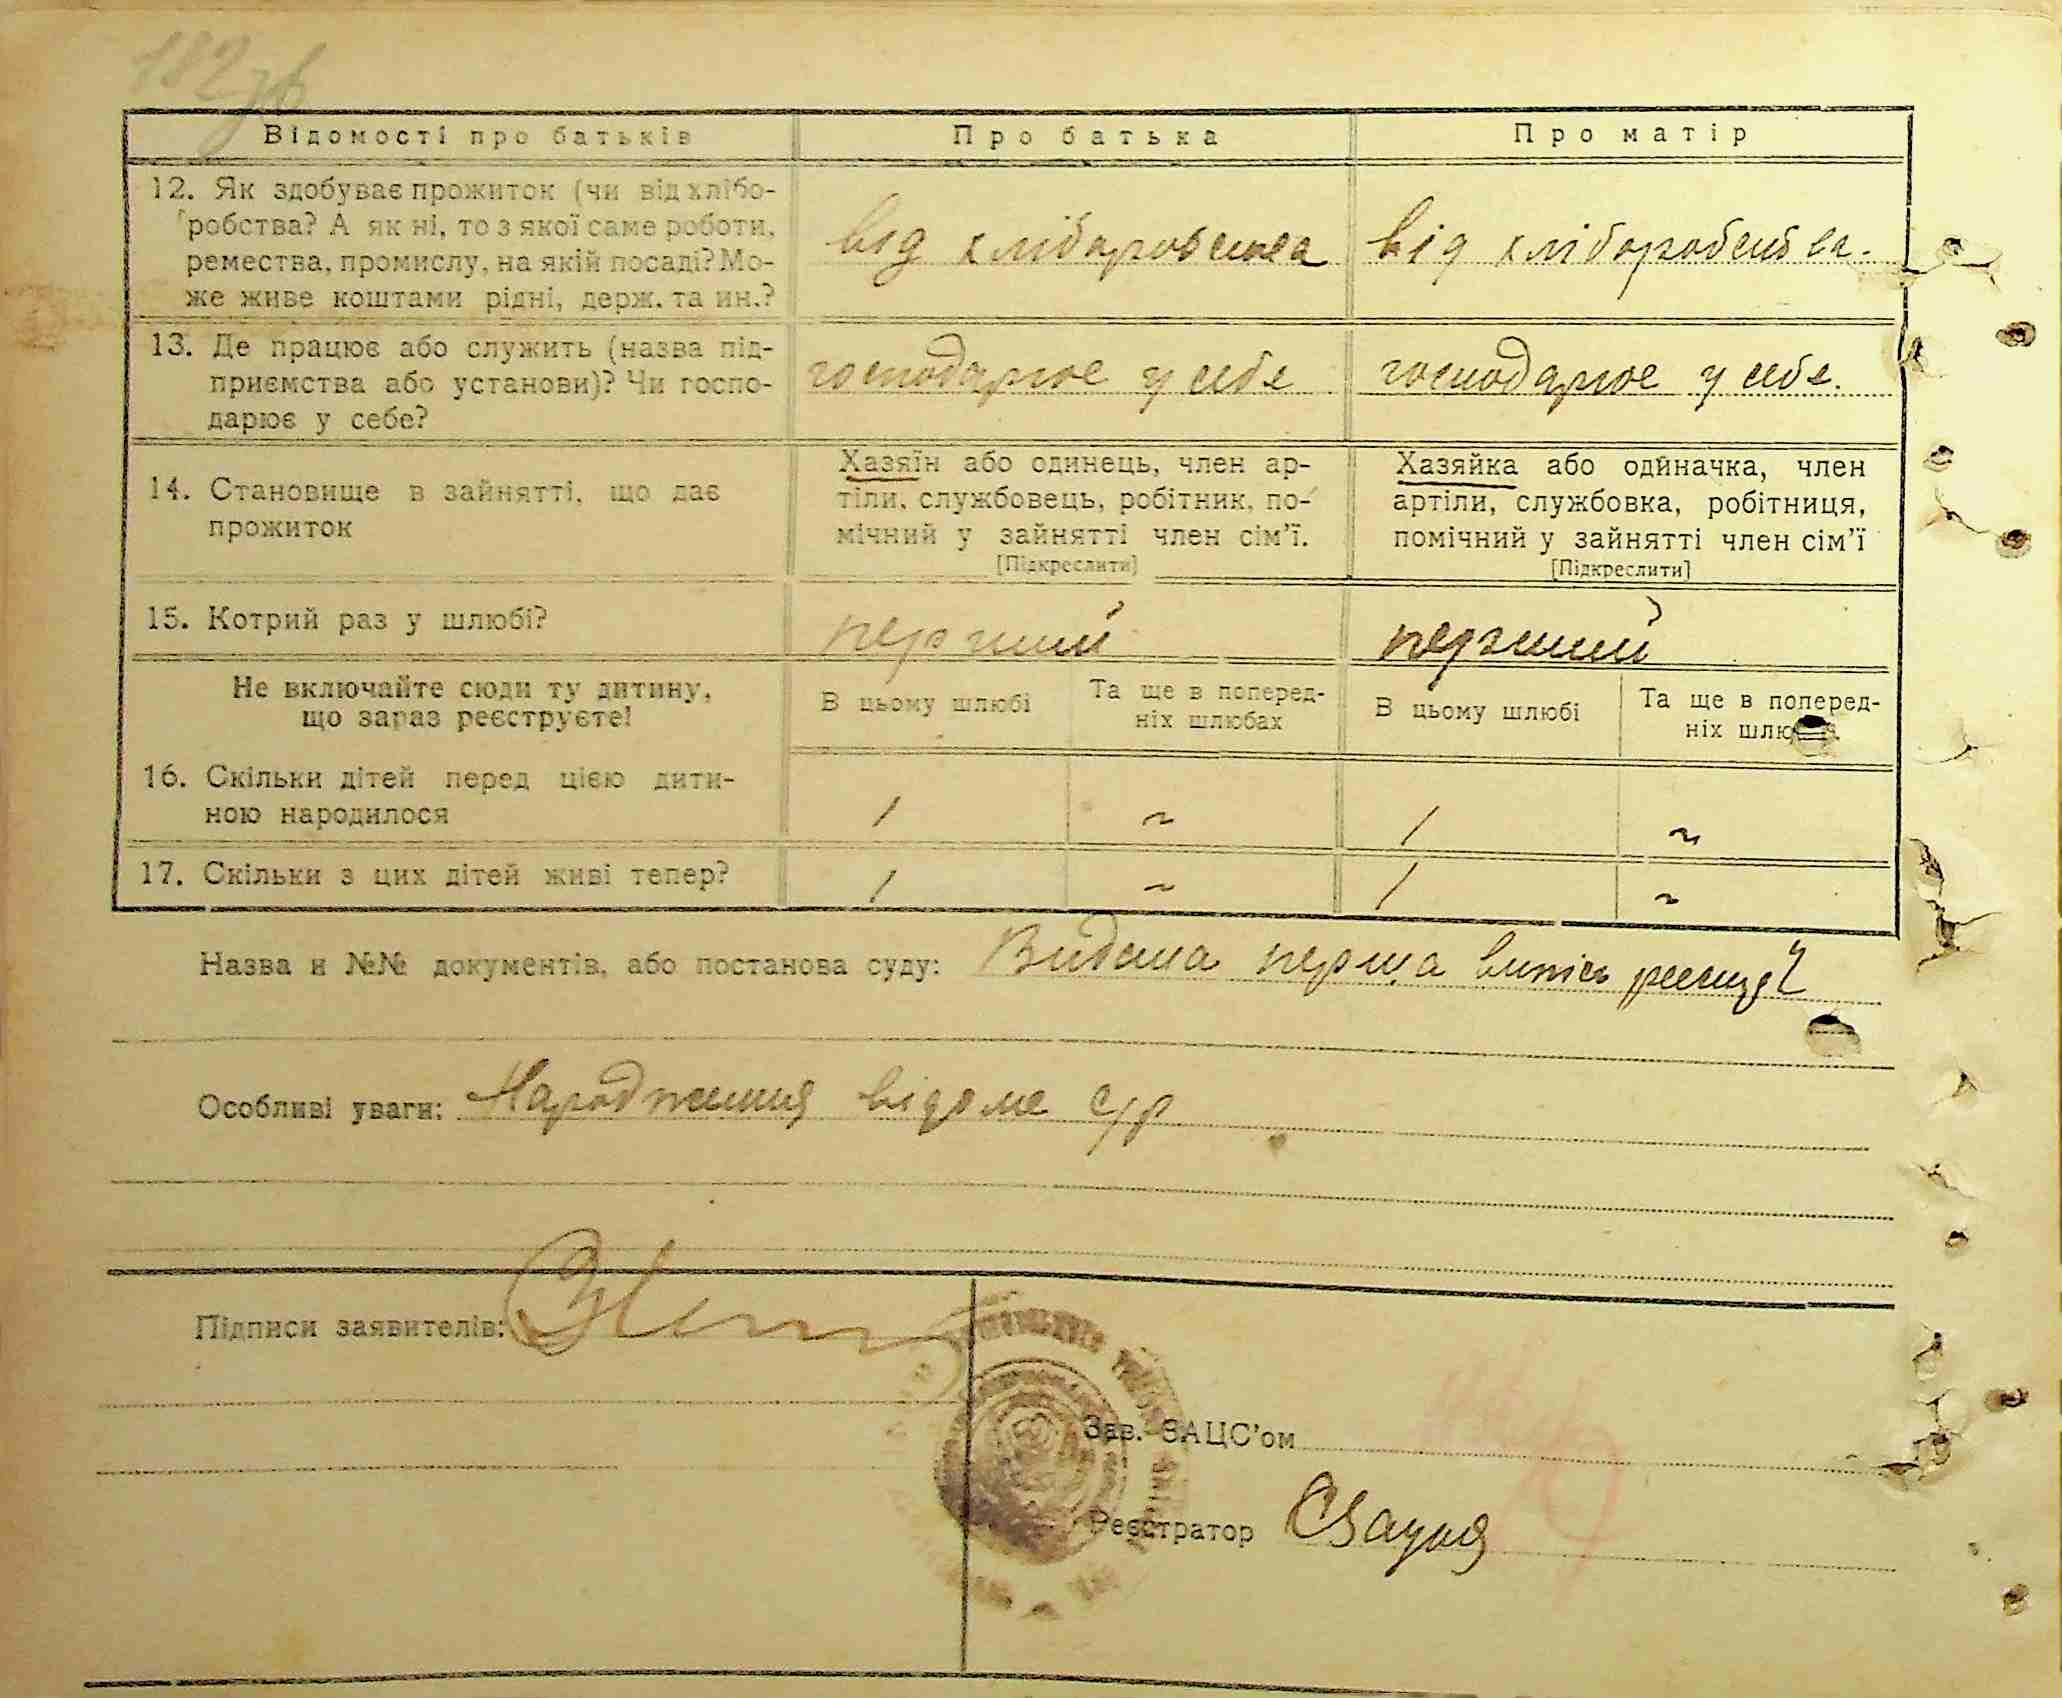 182 зв
Відомості про батьків
Про батька
Про матір
12. Як здобуває прожиток (чи від хлібо-
робства? А як ні, то з якої саме роботи,
ремества, промислу, на якій посаді? Мо-
же живе коштами рідні, держ. та ин.?
від хліборобства
від хліборобства.
13. Де працює або служить (назва під-
приємства або установи)? Чи госпо-
дарює у себе?
господарює у себе
господарює у себе.
14. Становище в зайнятті, що дає
прожиток
Хазяїн або одинець, член ар-
тіли, службовець, робітник, по-
мічний у зайнятті член сім'ї.
[Підкреслити]
Хазяйка або одйначка, член
артіли, службовка, робітниця,
помічний у зайнятті член сім'ї
[Підкреслити]
15. Котрий раз у шлюбі?
перший
перший
Не включайте сюди ту дитину,
що зараз реєструєте!
В цьому шлюбі
Та ще в поперед-
ніх шлюбах
В цьому шлюбі
Та ще в поперед-
ніх шлю
16. Скільки дітей перед цією дити-
ною народилося
1 ~ 1 ~
17. Скільки з цих дітей живі тепер?
1 ~ 1 ~
Назва и №№ документів, або постанова суду: Видана перша випись
Особливі уваги: Народження відоме с/р
Підписи заявителів:
Зав. ЗАЦС'ом
Реєстратор